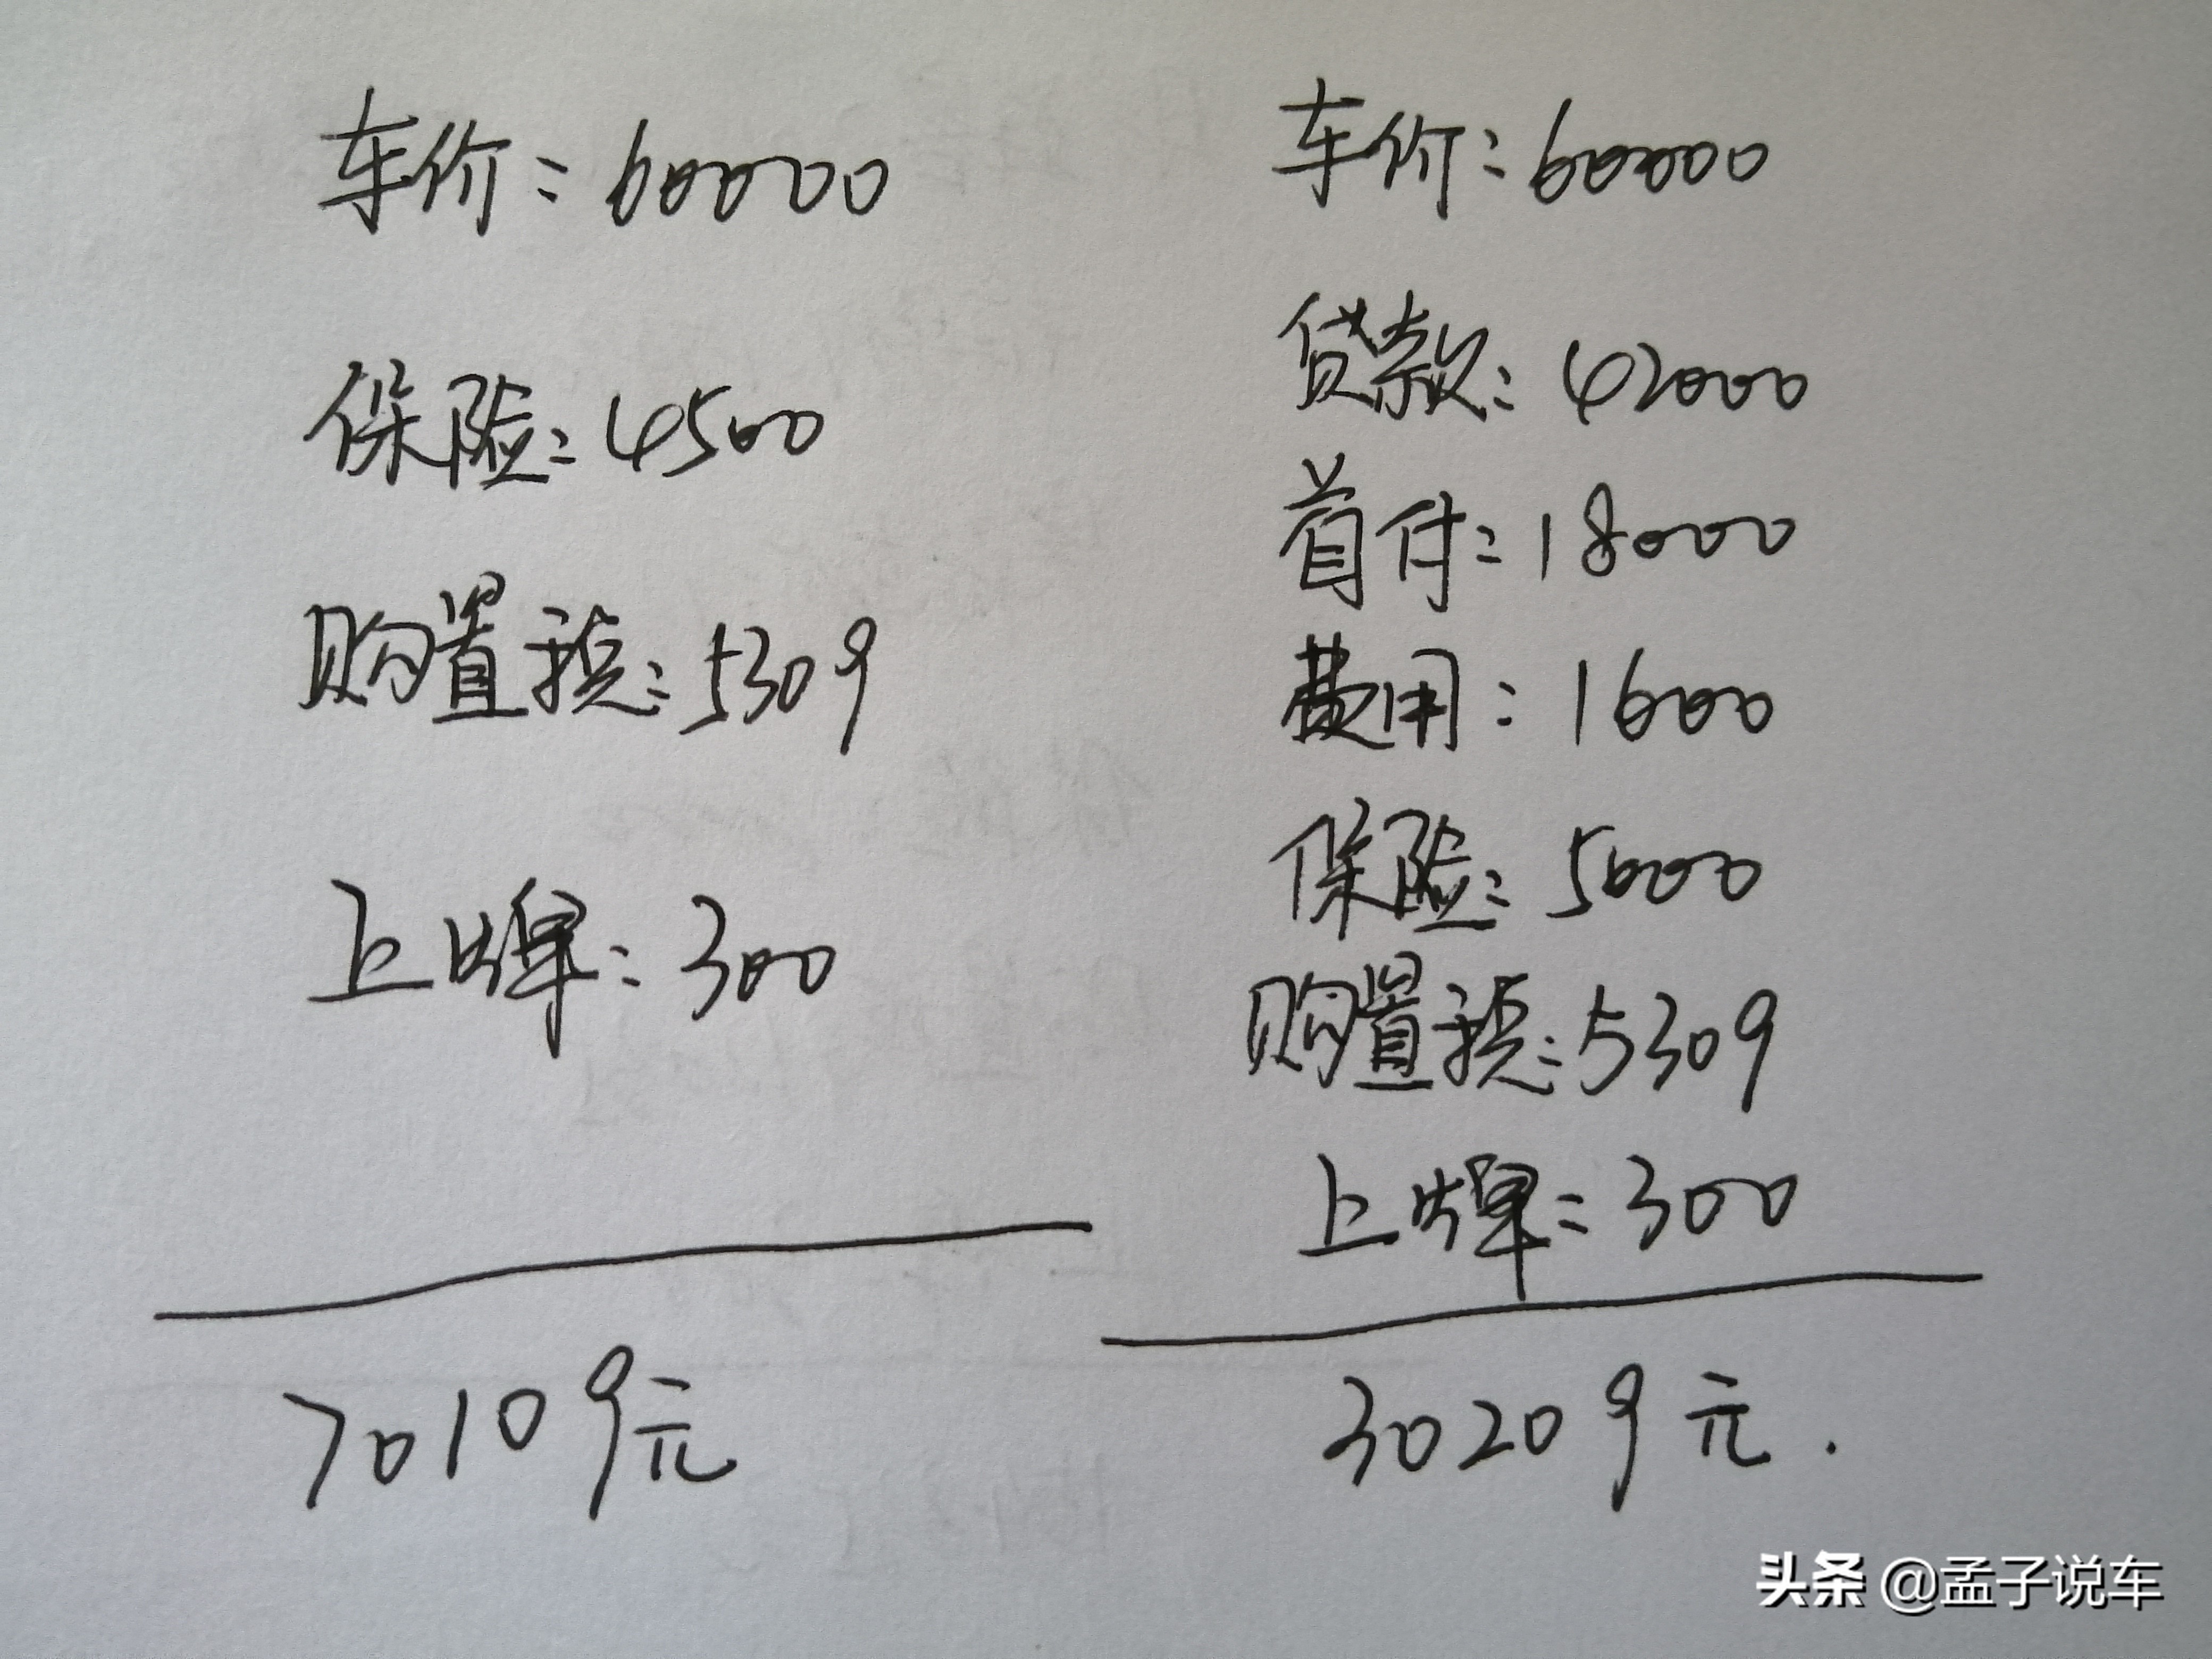 车价：60000
保险：4500
购置税：5309
上牌：300
70109元
车价：60000
贷款：42000
首付：18000
费用：1600
保险：5000
购置税：5309
上牌：300
30209元.
头条 @孟子说车